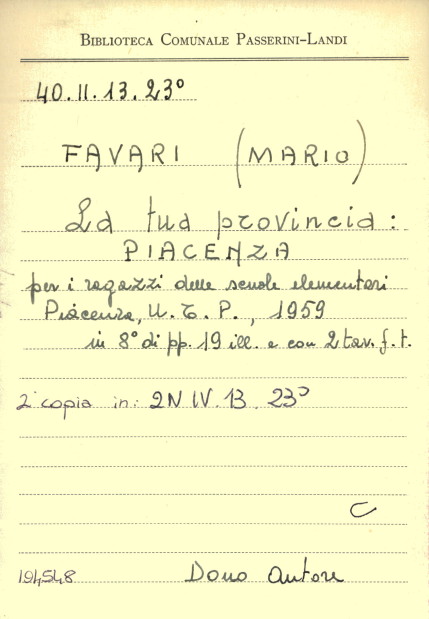 BIBLIOTECA COMUNALE PASSERINI-LANDI
40.II.13.23°
FAVARI (MARIO)
La tua provincia:
PIACENZA
per i ragazzi delle scuole elementari
Piacenza, U.T.P., 1959
in 8° di pp. 19 ill. e con 2 tav. f. t.
2ª copia in: 2N IV.13.23°
C
194548 Dono Autore